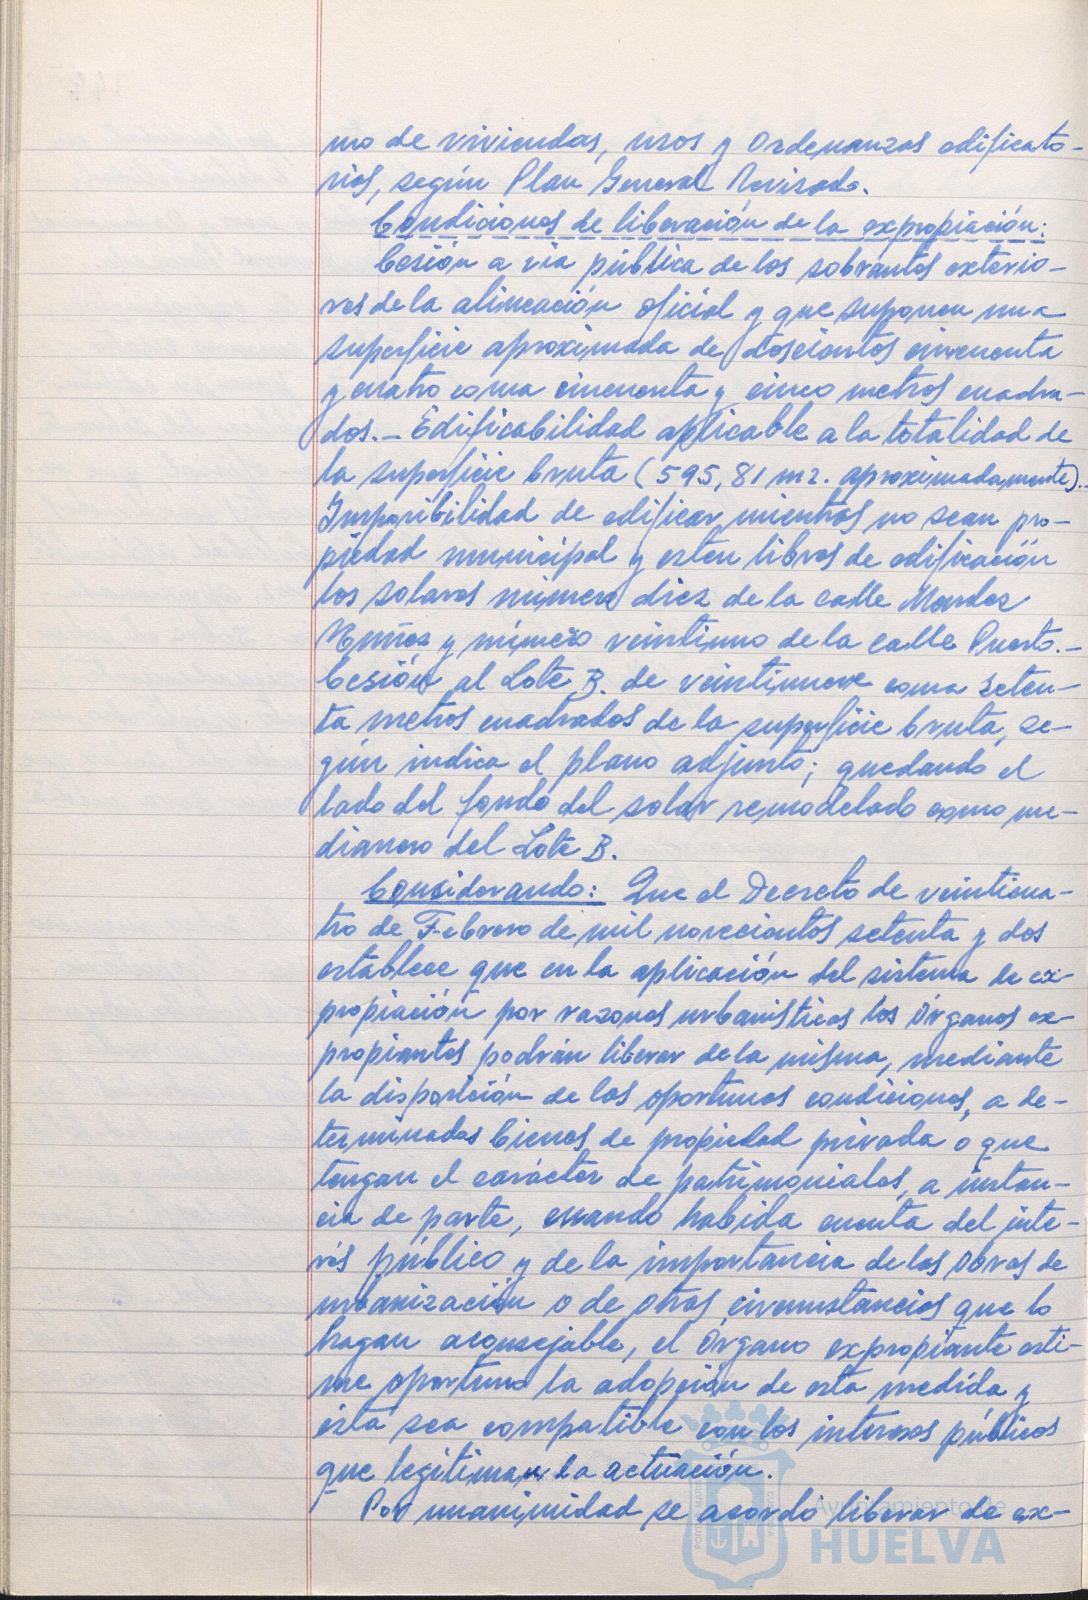 mo de viviendas, usos y Ordenanzas edificato-
rias, según Plan General Revisado.
Condiciones de liberación de la expropiación:
Cesión a vía pública de los sobrantes exterio-
res de la alineación oficial y que suponen una
superficie aproximada de doscientos cincuenta
y cuatro coma cincuenta y cinco metros cuadra-
dos.- Edificabilidad aplicable a la totalidad de
la superficie bruta (595,81 m2. aproximadamente).-
Imposibilidad de edificar mientras no sean pro-
piedad municipal y esten libres de edificación
los solares número diez de la calle Mendez
Nuñez y número veintiuno de la calle Puerto.-
Cesión al Lote B. de veintinueve coma seten-
ta metros cuadrados de la superficie bruta, se-
gún indica el plano adjunto; quedando el
lado del fondo del solar remodelado como me-
dianero del Lote B.
Considerando: Que el Decreto de veinticua-
tro de Febrero de mil novecientos setenta y dos
establece que en la aplicación del sistema de ex-
propiación por razones urbanísticas los Órganos ex-
propiantes podrán liberar de la misma, mediante
la disposición de las oportunas condiciones, a de-
terminados bienes de propiedad privada o que
tengan el carácter de patrimoniales, a instan-
cia de parte, cuando habida cuenta del inte-
rés público y de la importancia de las obras de
urbanización o de otras circunstancias que lo
hagan aconsejable, el Órgano expropiante esti-
me oportuno la adopción de esta medida y
ésta sea compatible con los intereses públicos
que legitiman la actuación.
Por unanimidad se acordó liberar de ex-
Ayuntamiento de
HUELVA